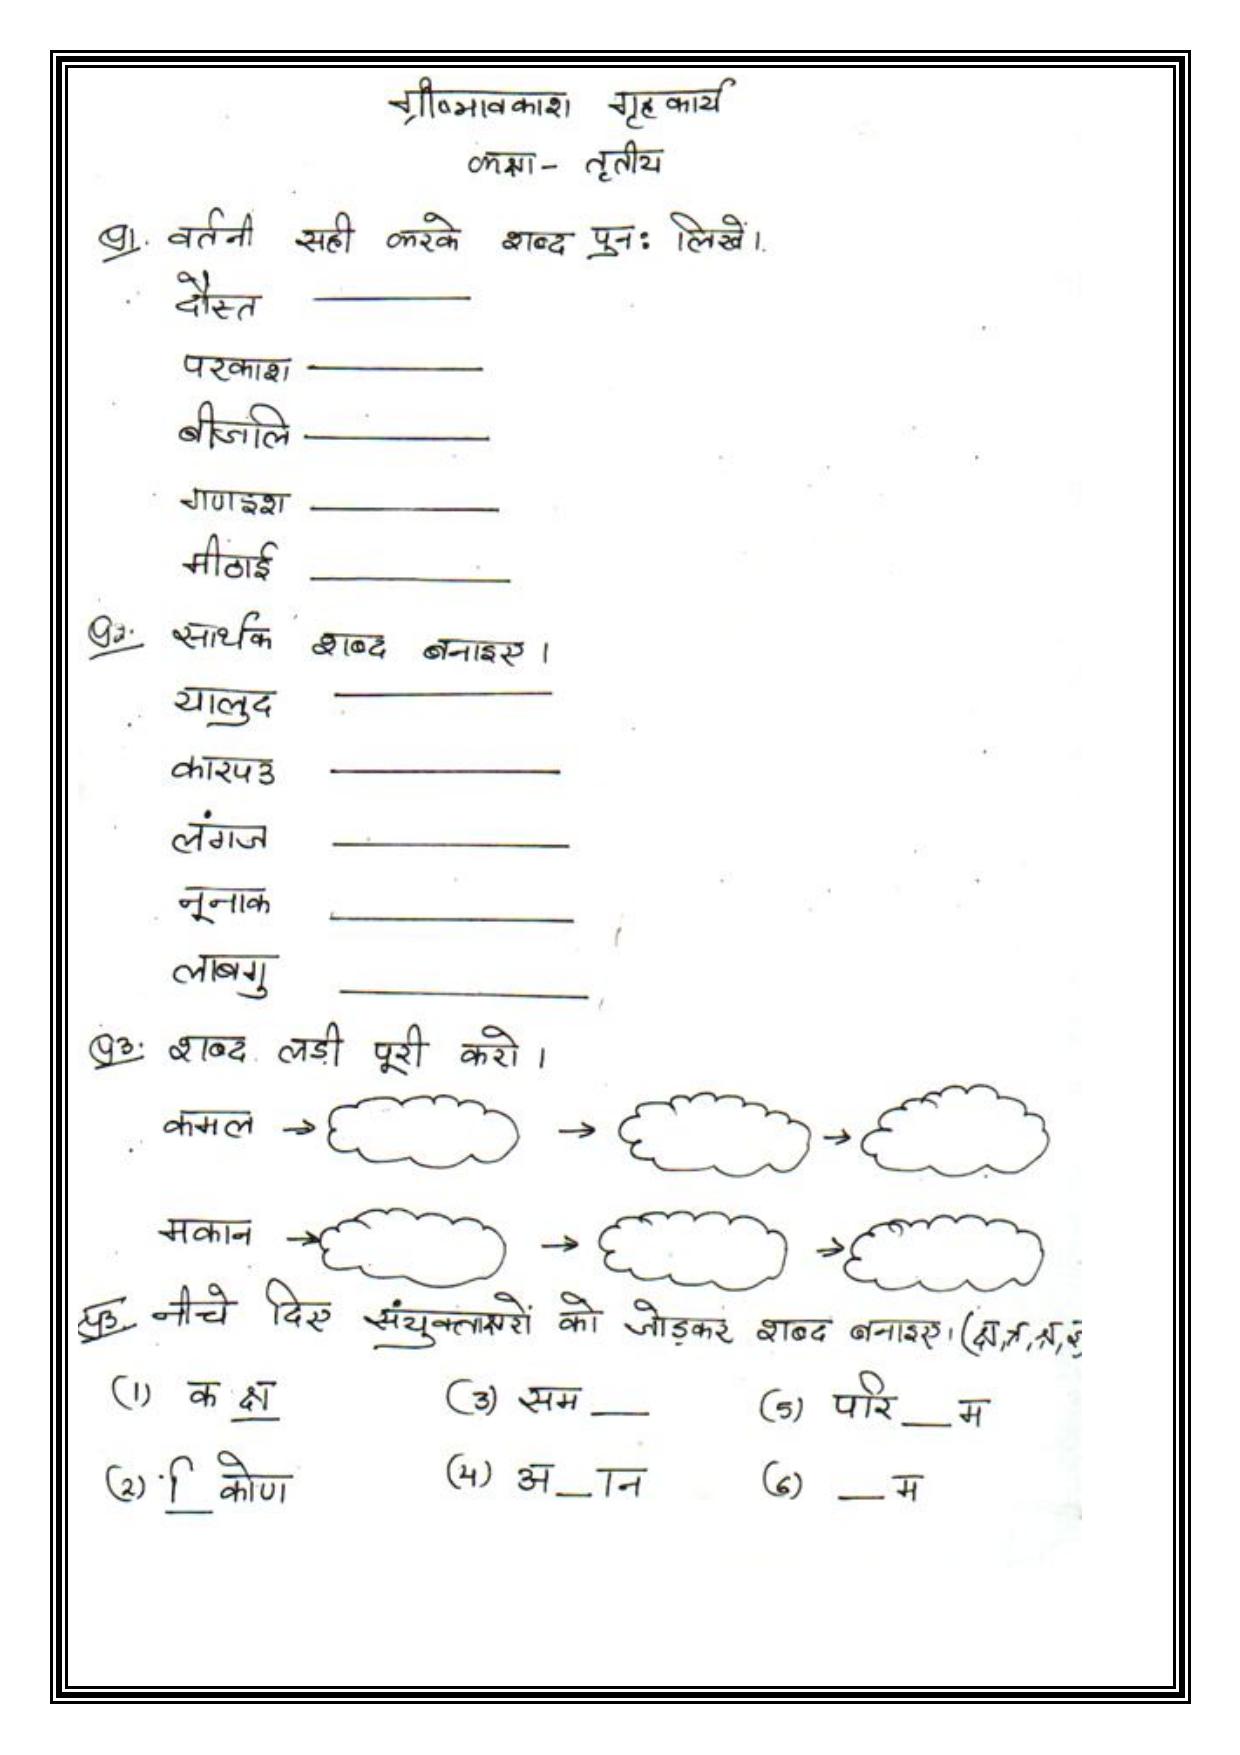 ग्रीष्मावकाश गृहकार्य
कक्षा - तृतीय
प्र1. वर्तनी सही करके शब्द पुनः लिखें।
दौस्त
परकाश
बीजलि
गणइश
मीठाई
प्र2. सार्थक शब्द बनाइए।
यालुद
कारपउ
लंगज
नूनाक
लाबगु
प्र3. शब्द लड़ी पूरी करो।
कमल → → →
मकान → → →
प्र3. नीचे दिए संयुक्ताक्षरों को जोड़कर शब्द बनाइए। (क्ष, त्र, श्र,
(1) क क्ष (3) सम __ (5) परि __ म
(2) ि__ कोण (4) अ __ ान (6) __ म